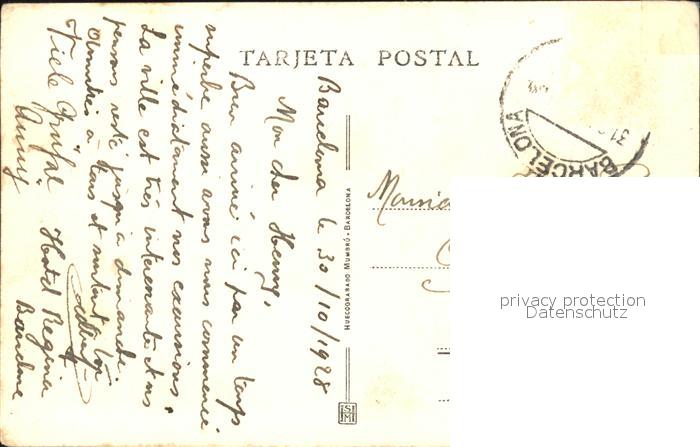 TARJETA POSTAL
Barcelona le 30/10/1928
Mon cher Henry,
Bien arrivé ici par un temps
superbe aussi avons nous commencé
immédiatement nos excursions.
La ville est très intéressante et nous
pensons rester jusqu'à dimanche.
à tous et surtout toi
Viele Grüße
Anny
Hotel Regina
Barcelone
HUECOGRABADO MUMBRÚ - BARCELONA
BARCELONA
31
privacy protection
Datenschutz